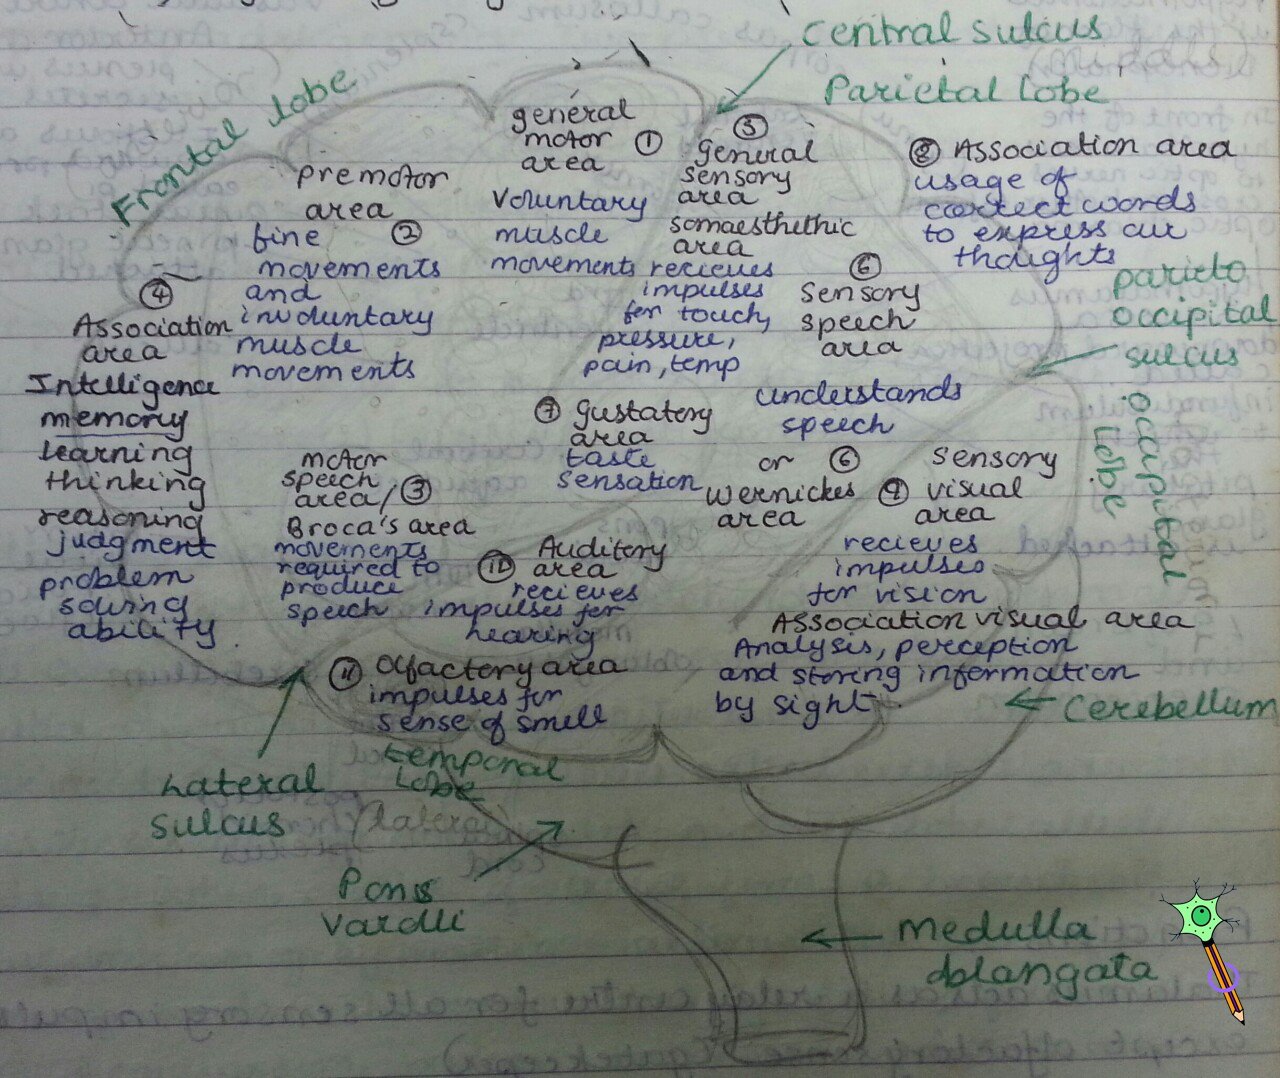 central sulcus
Parietal lobe
Frontal lobe
general
motor ①
area
voluntary
muscle
movements
premotor
area
fine ②
movements
and
involuntary
muscle
movements
⑤
general
sensory
area
somaesthethic
area
recieves
impulses
for touch,
pressure,
pain, temp
⑧ Association area
usage of
correct words
to express our
thoughts
⑥
sensory
speech
area
understands
speech
or ⑥
wernickes
area
parieto
occipital
sulcus
occipital
lobe
④
Association
area
Intelligence
memory
learning
thinking
reasoning
judgment
problem
solving
ability.
motor
speech
area/③
Broca's area
movements
required to
produce
speech
⑦ gustatory
area
taste
sensation
sensory
⑨ visual
area
recieves
impulses
for vision
Association visual area
Analysis, perception
and storing information
by sight.
⑩ Auditory
area
recieves
impulses for
hearing
⑪ olfactory area
impulses for
sense of smell
temporal
lobe
Lateral
sulcus
Cerebellum
Pons
Varolli
medulla
oblangata